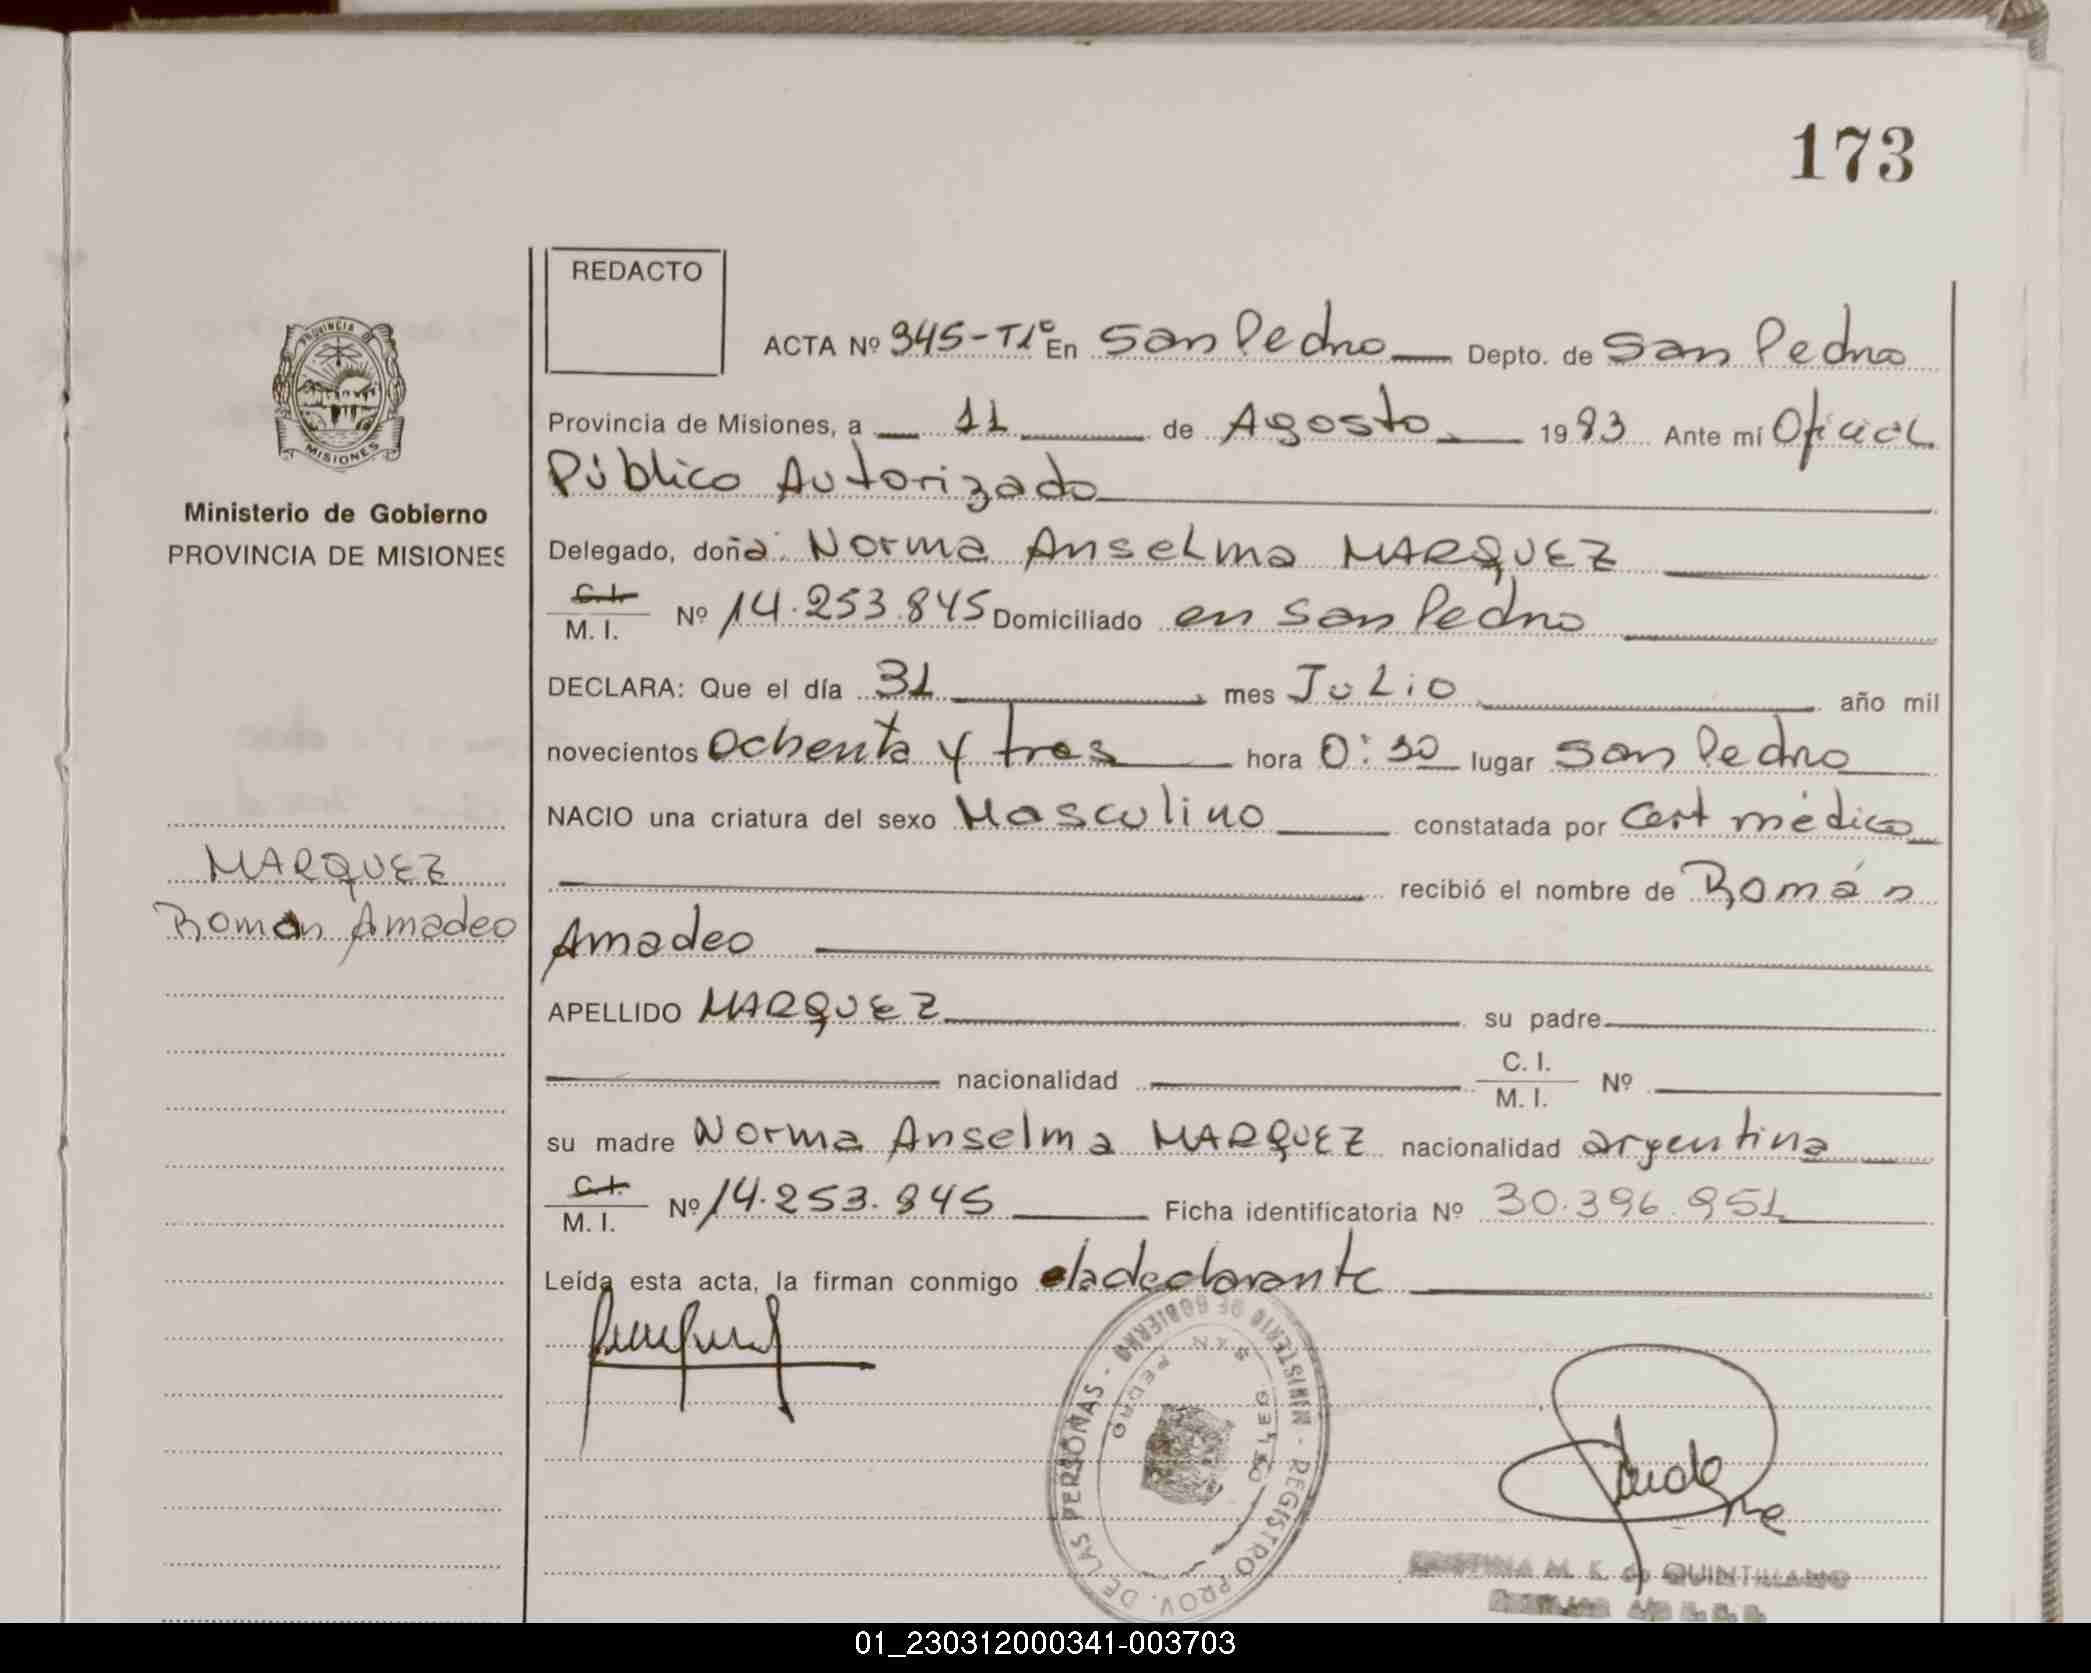 173
REDACTO
ACTA Nº 345-T1º En San Pedro Depto. de San Pedro
Provincia de Misiones, a 11 de Agosto 1983 Ante mí Oficial
Público Autorizado
Delegado, doña Norma Anselma MARQUEZ
C.I.
M. I. Nº 14.253.845 Domiciliado en San Pedro
DECLARA: Que el día 31 mes Julio año mil
novecientos ochenta y tres hora 0:30 lugar San Pedro
NACIO una criatura del sexo Masculino constatada por Cert médico
recibió el nombre de Román
Amadeo
APELLIDO MARQUEZ su padre
nacionalidad C. I.
M. I. Nº
su madre Norma Anselma MARQUEZ nacionalidad argentina
C.I.
M. I. Nº 14.253.845 Ficha identificatoria Nº 30.396.951
Leída esta acta, la firman conmigo la declarante
PROVINCIA DE
MISIONES
Ministerio de Gobierno
PROVINCIA DE MISIONES
MARQUEZ
Román Amadeo
MINISTERIO DE GOBIERNO - REGISTRO PROV. DE LAS PERSONAS -
DELEG. SAN PEDRO
M. K. de QUINTILLANO
01_230312000341-003703